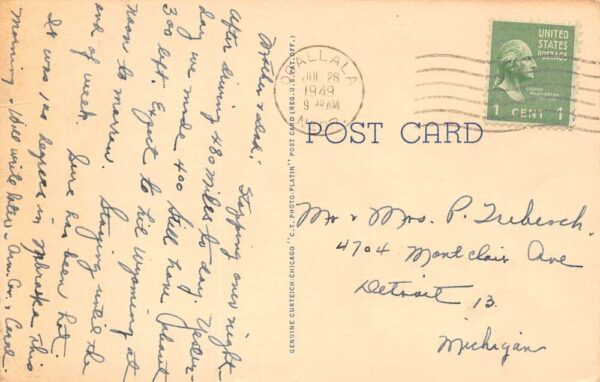 Mother & Dad: Stopping over night
After driving 480 miles to-day. Yester-
day we made 400. Still have about
300 left. Expect to hit Wyoming at
noon to-morrow. Staying until the
end of week. Sure has been hot.
It was 100 degrees in Nebraska this
morning. Will write later - & Carol
OGALLALA
26
1949
9 30 AM
UNITED
STATES
POSTAGE
GEORGE
WASHINGTON
1 CENT 1
POST CARD
GENUINE CURTEICH-CHICAGO "C.T. PHOTO-PLATIN" POST CARD (REG. U.S. PAT. OFF.)
Mr & Mrs. P.
4704 Montclair Ave
Detroit 13.
Michigan